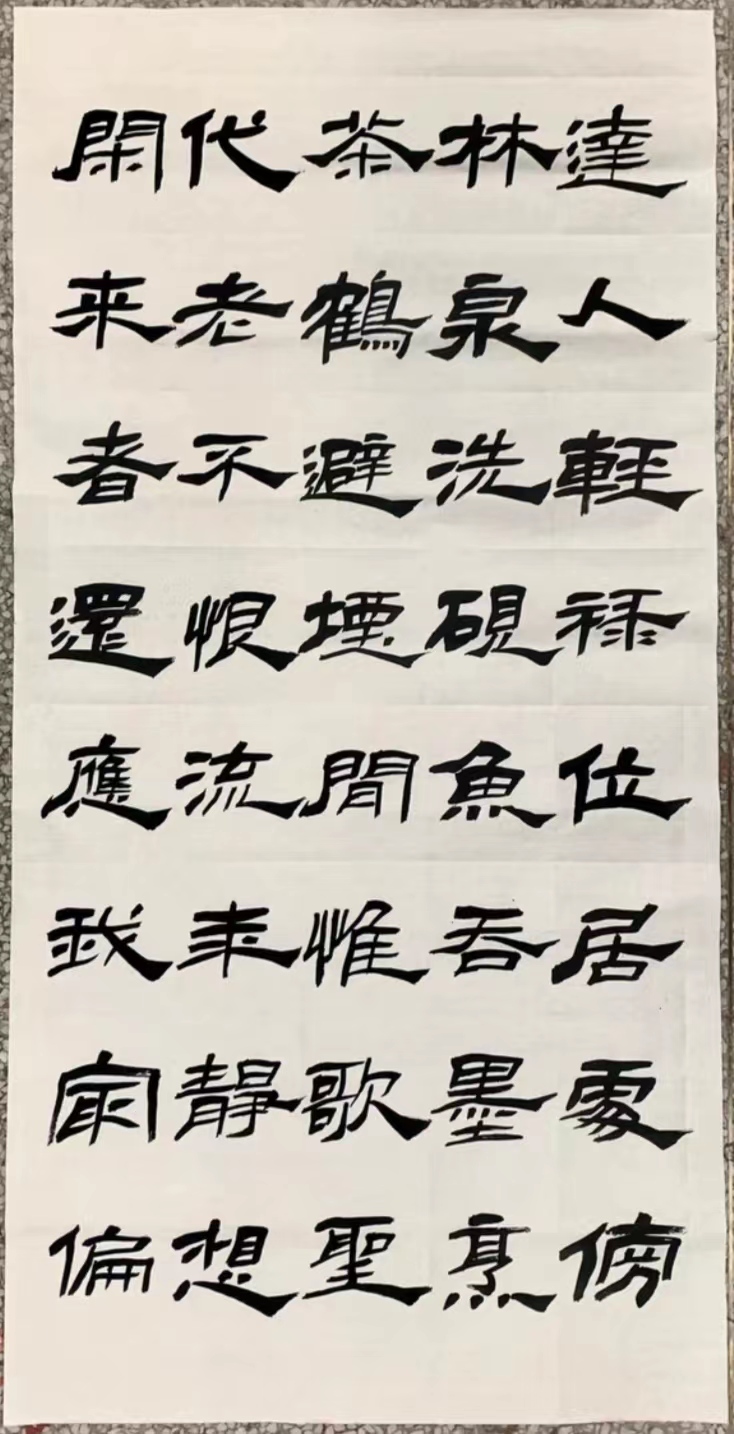 達人輕禄位居處傍
林泉洗硯魚吞墨烹
茶鶴避煙閒惟歌聖
代老不恨流年靜想
閑来者還應我冣偏